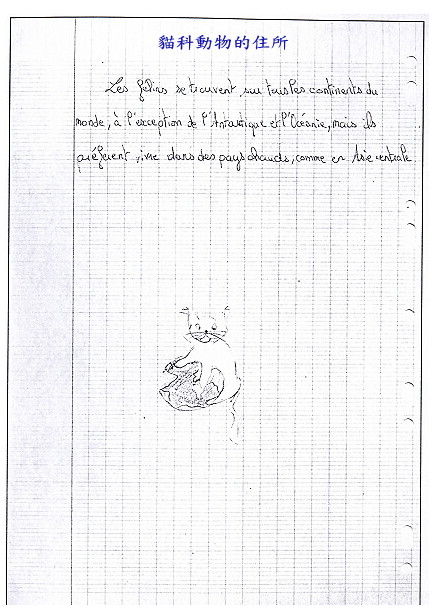 貓科動物的住所
Les félins se trouvent, sur tous les continents du
monde, à l'exception de l'Antartique et l'Océanie, mais ils
préfèrent vivre dans des pays chauds, comme en Asie centrale